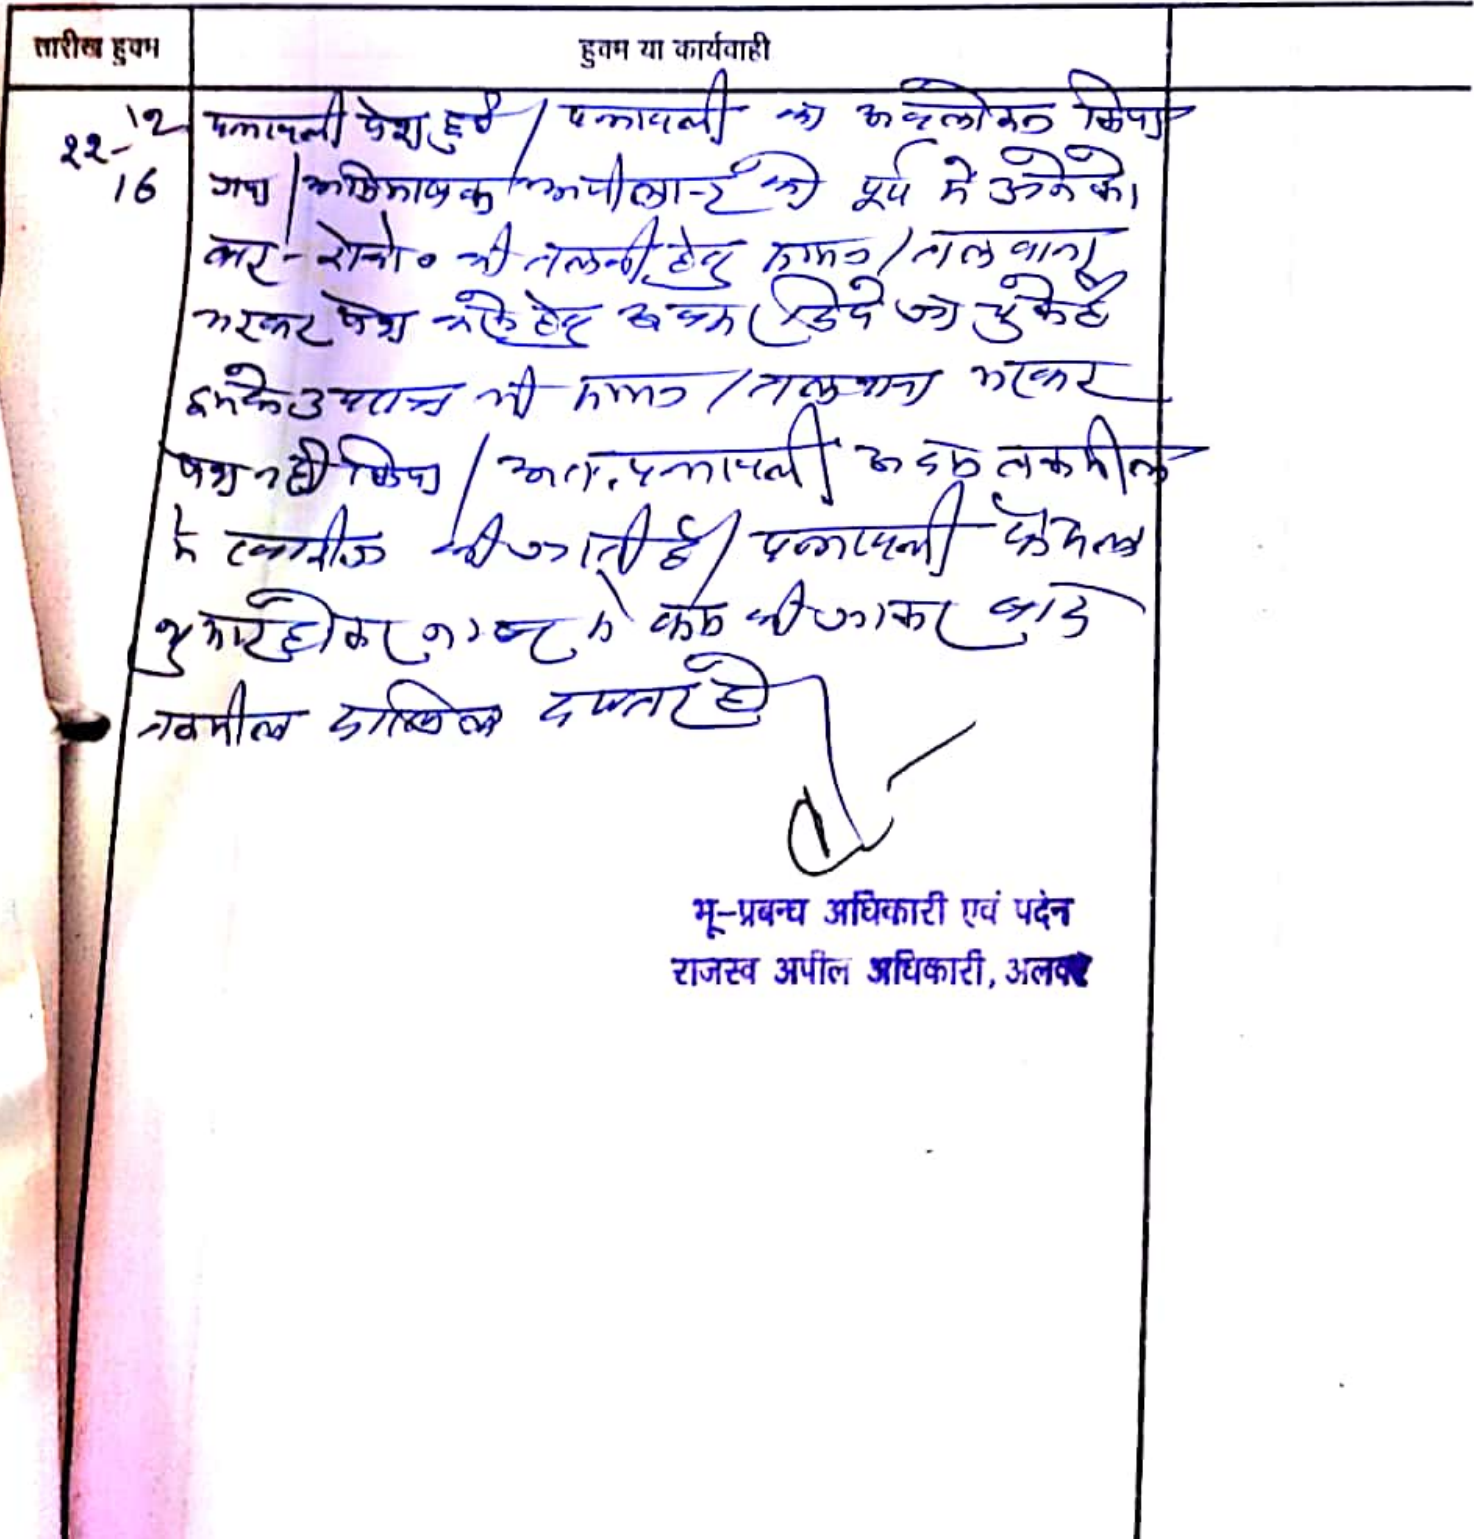 तारीख हुक्म
हुक्म या कार्यवाही
22-12
16
पत्रावली पेश हुई / पत्रावली का अवलोकन किया
गया / अभिभाषक अपीलान्ट को पूर्व में अनेको
बार रेस्पो० की तलबी हेतु सम्मन / तलवाना
भरकर पेश करने हेतु अवसर दिये जा चुके है
इसके उपरान्त भी सम्मन / तलवाना भरकर
पेश नही किया / अतः पत्रावली अदम तकमील
मे खारीज की जाती है / पत्रावली फैसल
शुमार होकर नम्बर से कम की जाकर बाद
तकमील दाखिल दफ्तर हो
भू-प्रबन्ध अधिकारी एवं पदेन
राजस्व अपील अधिकारी, अलवर